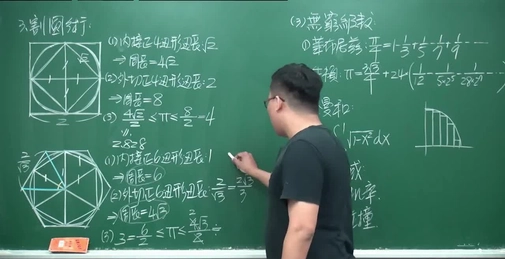 3.割圓術:
√2
2
(1)內接正4边形边長:√2
⇒周長=4√2
(2)外切正4边形边長:2
⇒周長=8
(3) 4√2/2 ≤ π ≤ 8/2 = 4
2.828
2/√3
(1)內接正6边形边長:1
⇒周長=6
(2)外切正6边形边長:2/√3=2√3/3
⇒周長=4√3
(3) 3=6/2 ≤ π ≤ 4√3/2 ≒
(3)無窮級數
π/4=1-1/3+1/5-1/7+1/9-⋯
π=3√3/4+24(1/12-1/5·2^5-1/28·2^7-⋯
√1-x² dx